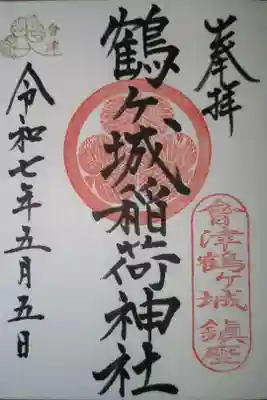 奉拝
會津鶴ヶ城 鎮座
鶴ヶ城稲荷神社
令和七年五月五日
會津